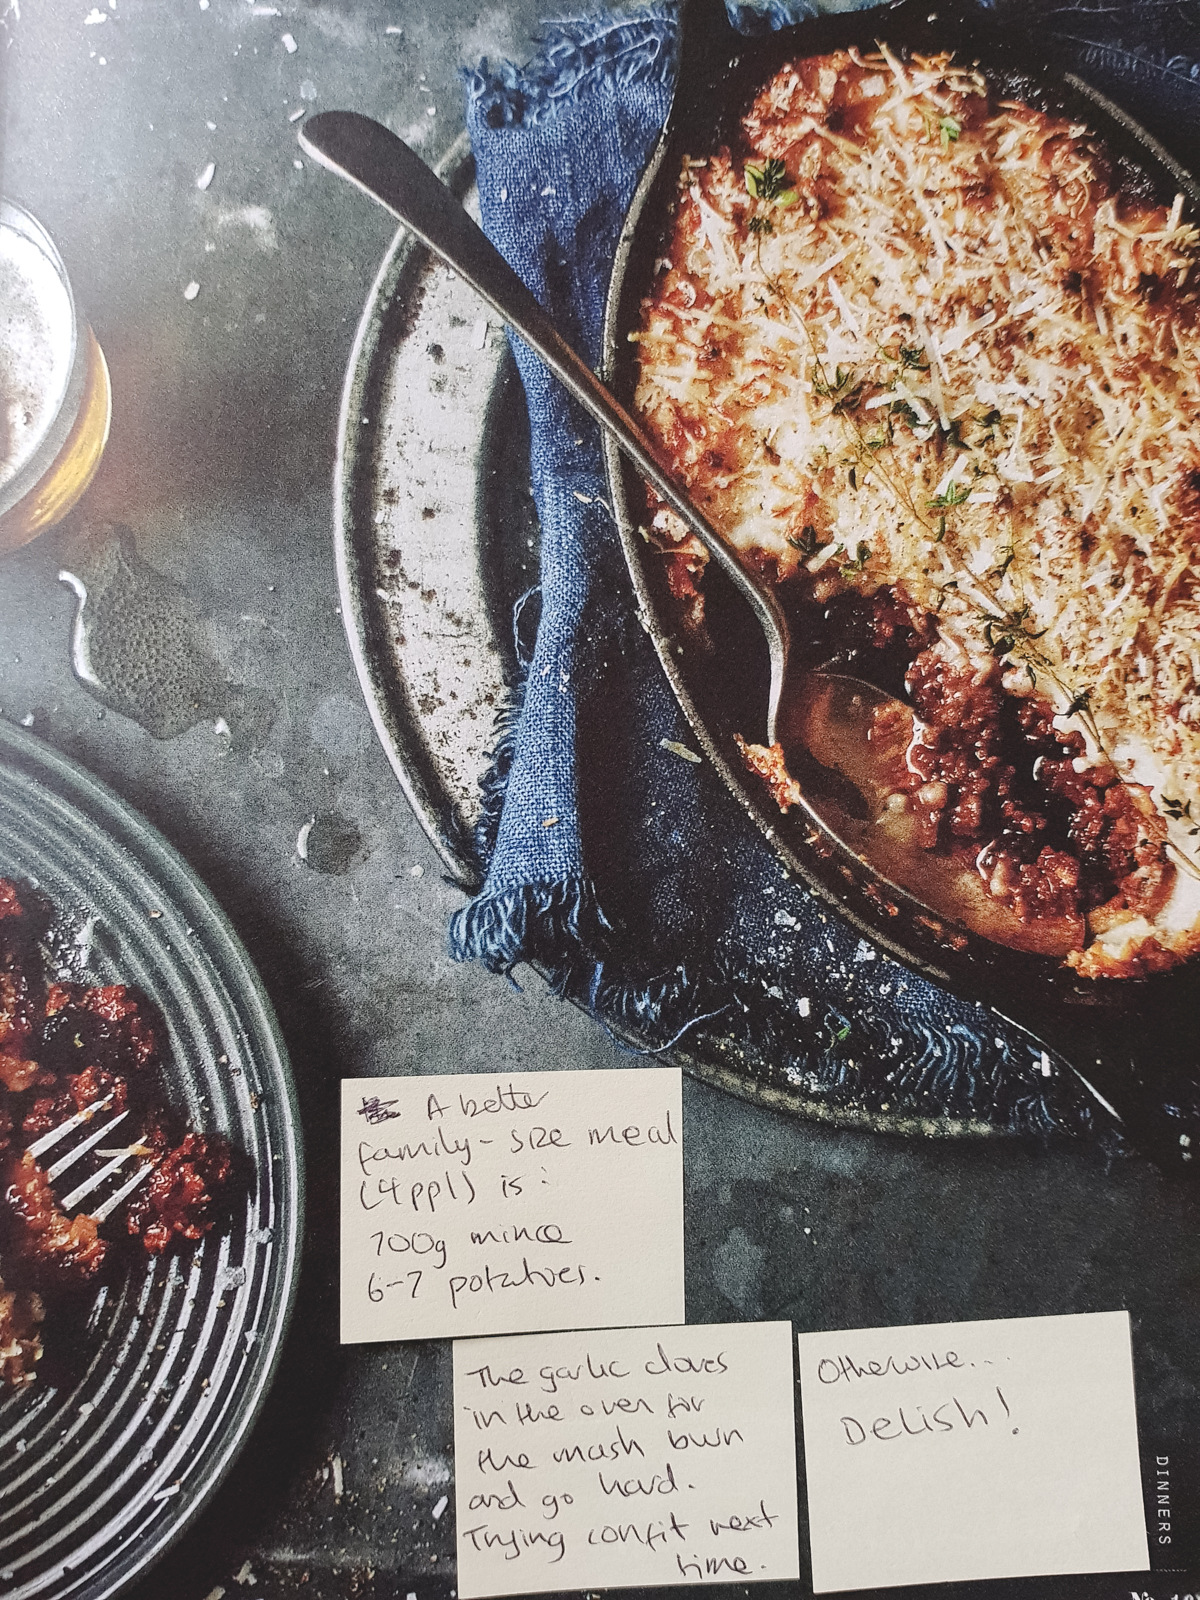 A better
family-size meal
(4ppl) is:
700g mince
6-7 potatoes.
The garlic cloves
in the oven for
the mash burn
and go hard.
Trying confit next
time.
Otherwise...
DELISH!
DINNERS